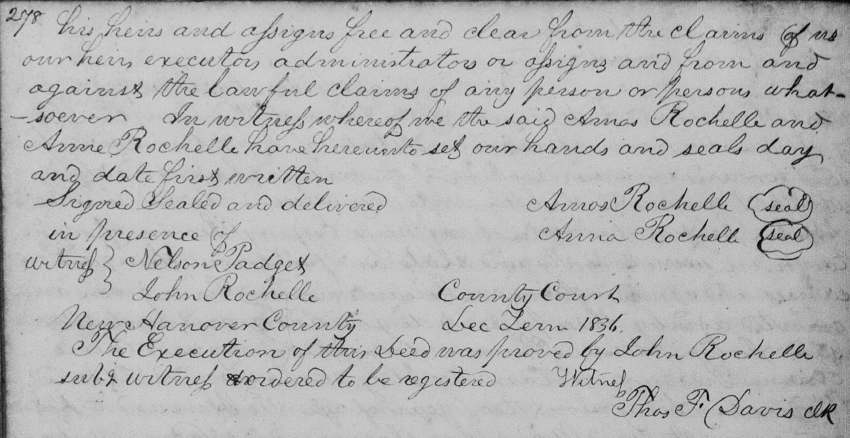 278 his heirs and assigns free and clear from the claims of us
our heirs executors administrators or assigns and from and
against the lawful claims of any person or persons what-
-soever In witness whereof we the said Amos Rochelle and
Anne Rochelle have hereunto set our hands and seals day
and date first written
Signed Sealed and delivered Amos Rochelle (seal)
in presence of Anna Rochelle (seal)
witness } Nelson Padget
John Rochelle County Court
New Hanover County Dec Term 1836.
The Execution of this Deed was proved by John Rochelle
subs witness & ordered to be registered Witness
Thos F. Davis clk